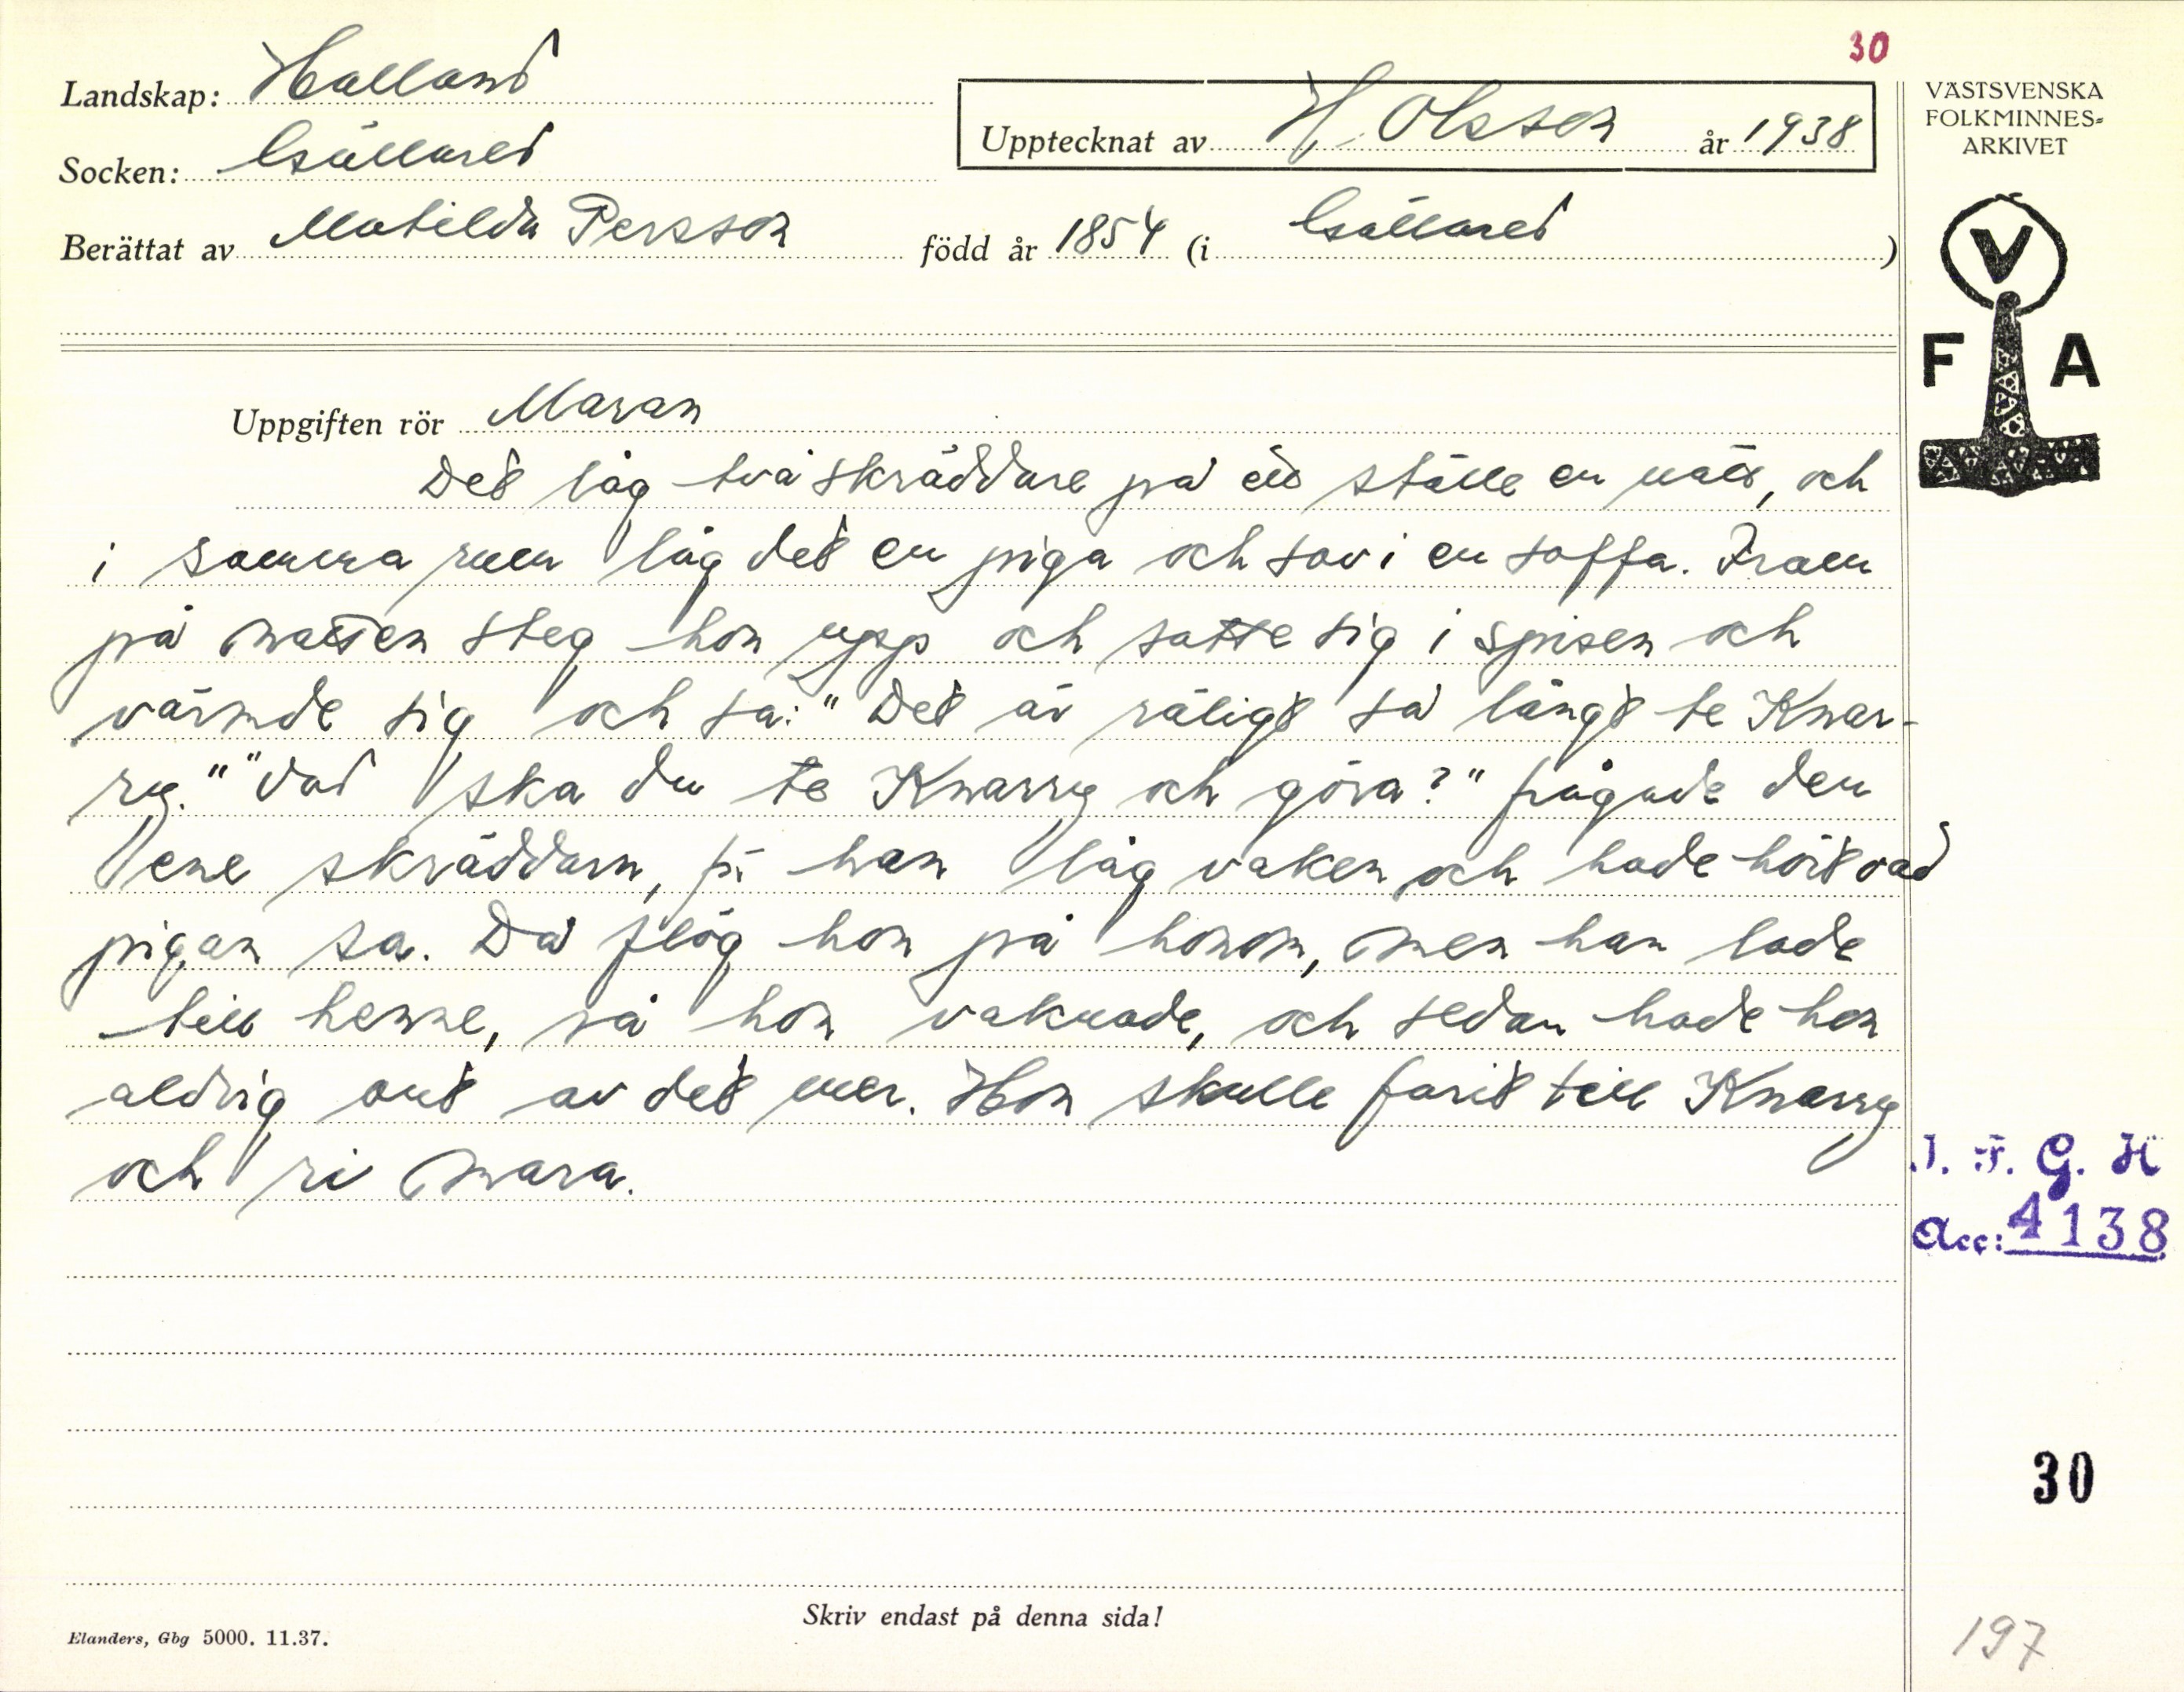 30
Landskap: Halland
Upptecknat av H. Olsson år 1938
Socken: Gällared
Berättat av Matilda Persson född år 1854 (i Gällared)
VÄSTSVENSKA
FOLKMINNES-
ARKIVET
V
F A
Uppgiften rör Maran
Det låg två skräddare på ett ställe en natt, och
i samma rum låg det en piga och sov i en soffa. Fram
på natten steg hon upp och satte sig i spisen och
värmde sig och sa: "Det är räligt så långt te Knar-
ry." "Vad ska du te Knarry och göra?" frågade den
ene skräddarn, för han låg vaken och hade hört vad
pigan sa. Då flög hon på honom, men han lade
till henne, så hon vaknade, och sedan hade hon
aldrig ont av det mer. Hon skulle farit till Knarry
och ri mara.
I. F. G. H
Acc: 4138
30
Skriv endast på denna sida!
Elanders, Gbg 5000. 11.37.
197